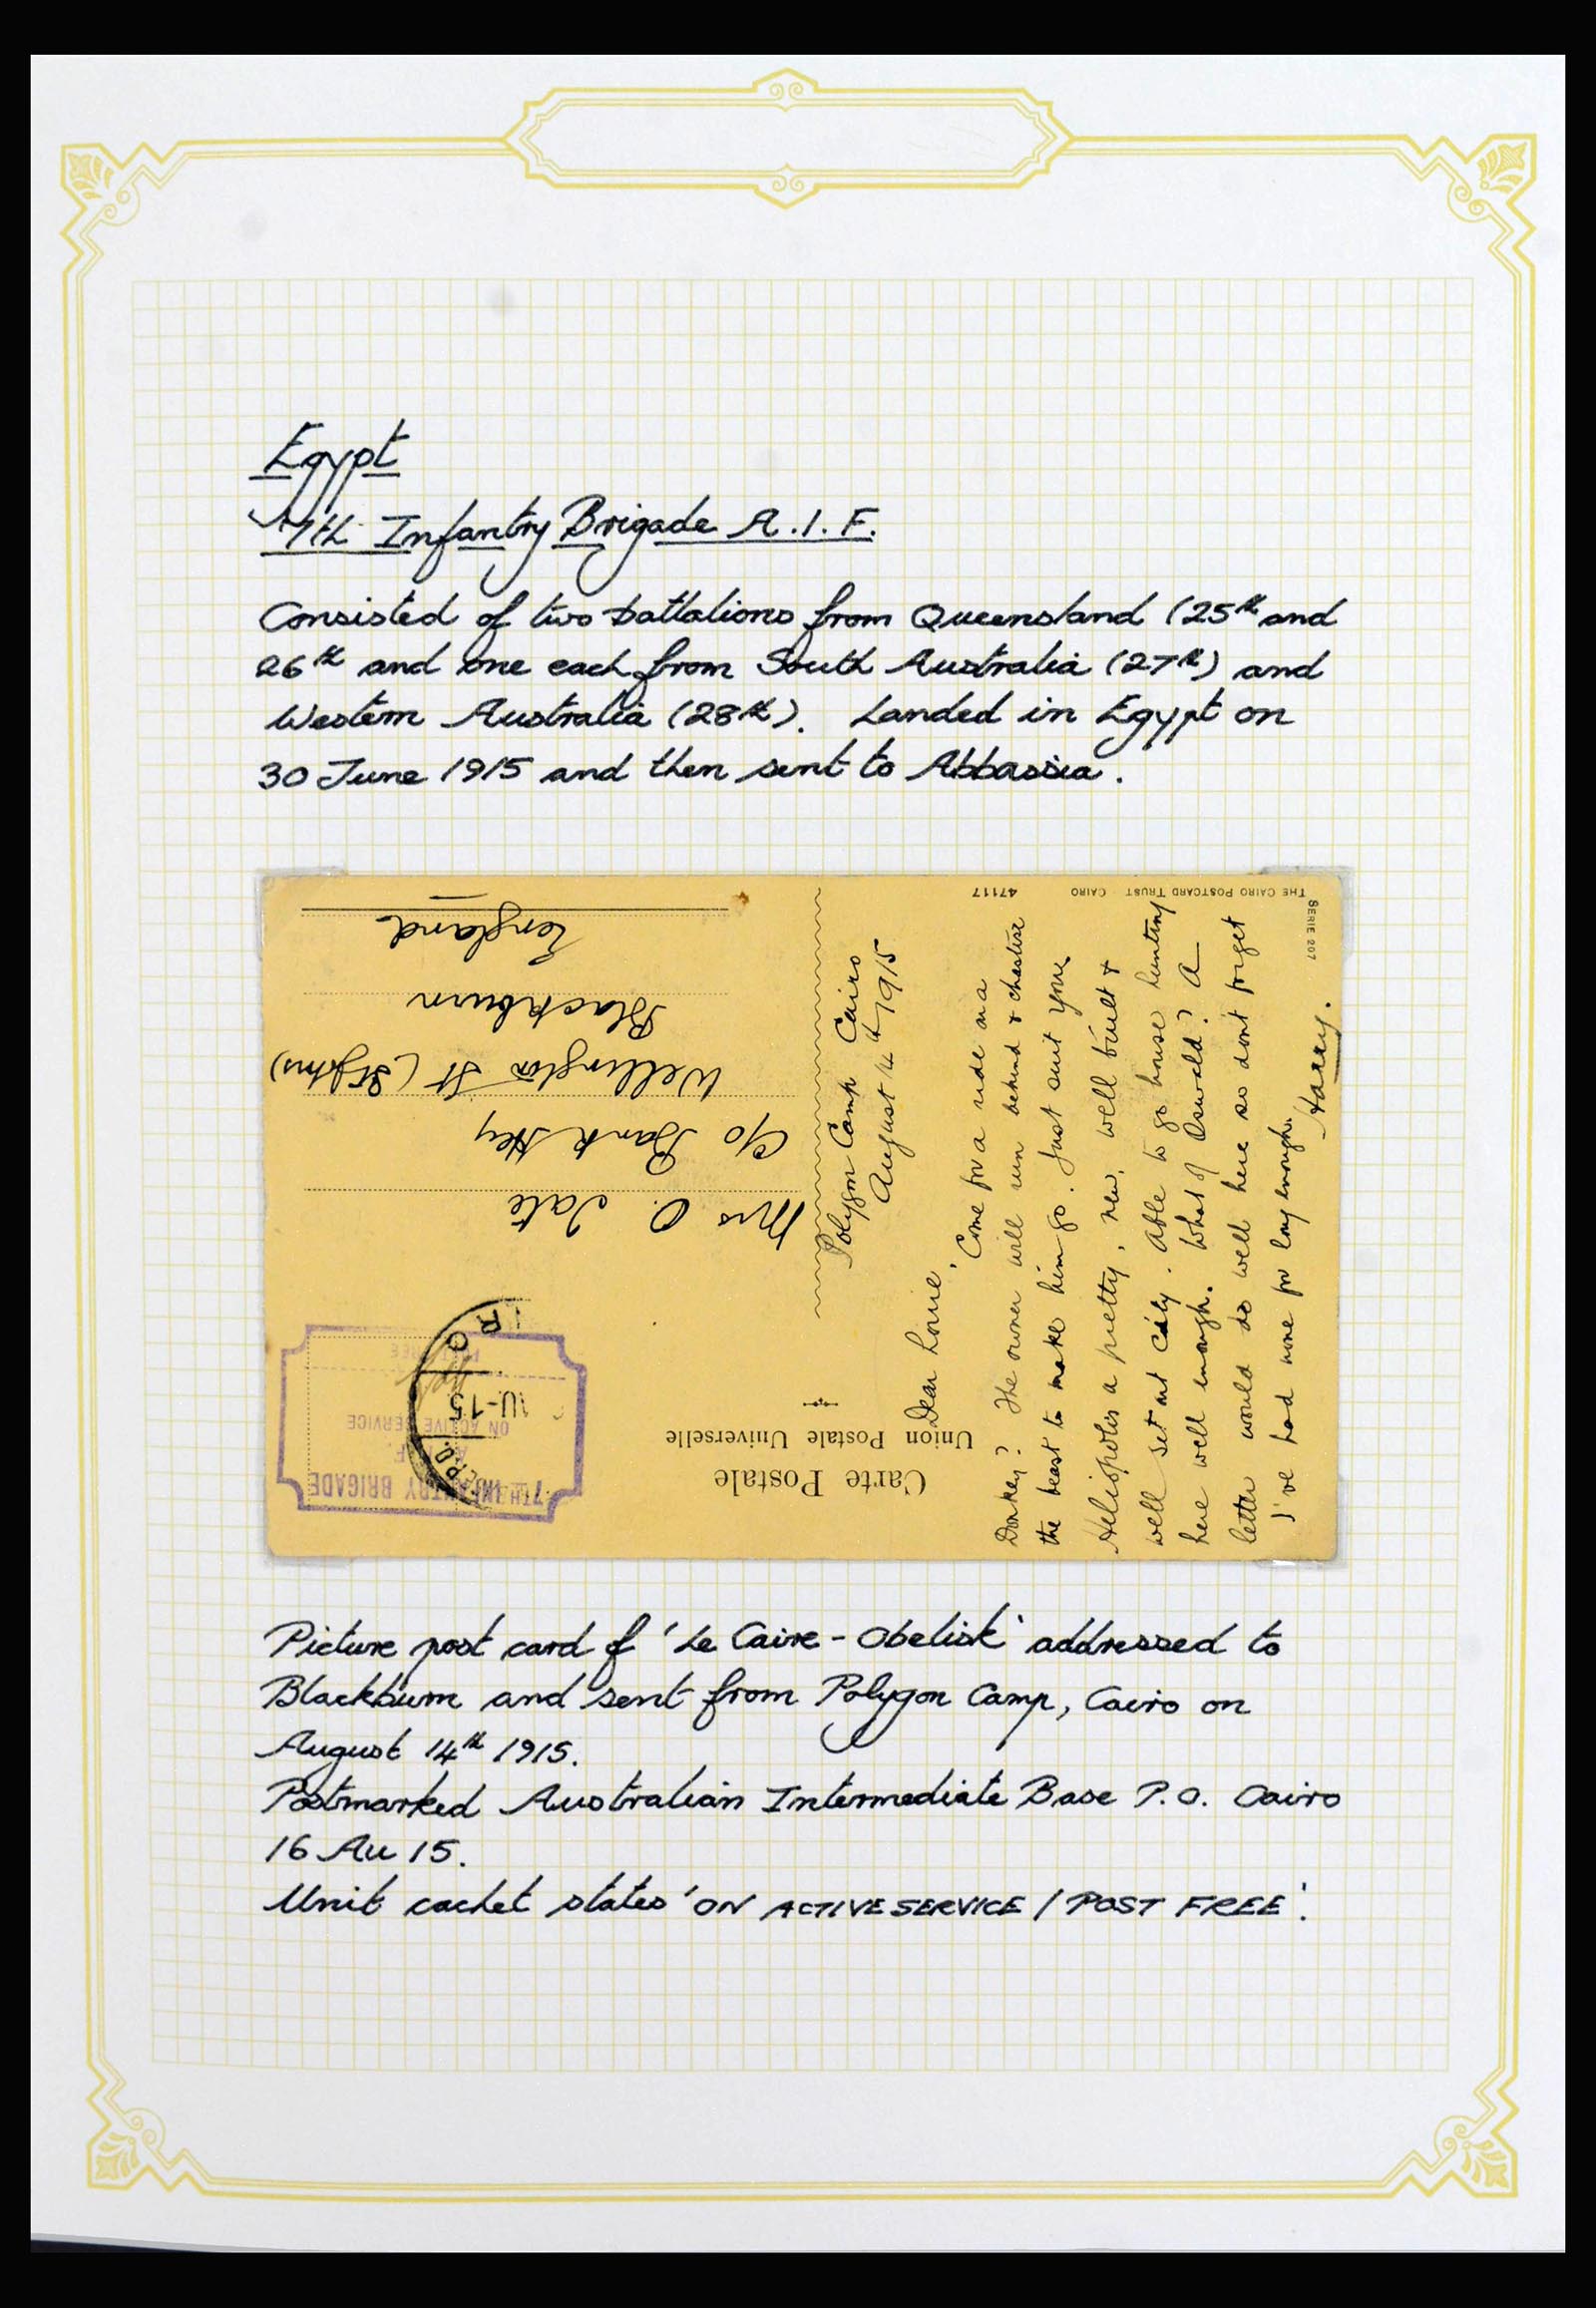 Egypt
7th Infantry Brigade A.I.F.
Consisted of two battalions from Queensland (25th and
26th and one each from South Australia (27th) and
Western Australia (28th). Landed in Egypt on
30 June 1915 and then sent to Abbassia.
7TH INFANTRY BRIGADE
ON ACTIVE SERVICE
POST FREE
U-15
Carte Postale
Union Postale Universelle
Mrs O. Tate
c/o Bank Hey
Wellington St (St Johns)
Blackburn
England
Polygon Camp Cairo
August 14th 1915
Dear Louie,
Come for a ride on a
Donkey? The owner will run behind & chastise
the beast to make him go. Just suit you.
Heliopolis a pretty, new, well built &
well set out city. Able to go house hunting
here well enough. What of Oswald? A
letter would do well here so dont forget
I've had none for long enough.
Harry.
THE CAIRO POSTCARD TRUST CAIRO 47117
SERIE 207
Picture post card of 'Le Caire - Obelisk' addressed to
Blackburn and sent from Polygon Camp, Cairo on
August 14th 1915.
Postmarked Australian Intermediate Base P.O. Cairo
16 Au 15.
Unit cachet states 'ON ACTIVE SERVICE / POST FREE'.